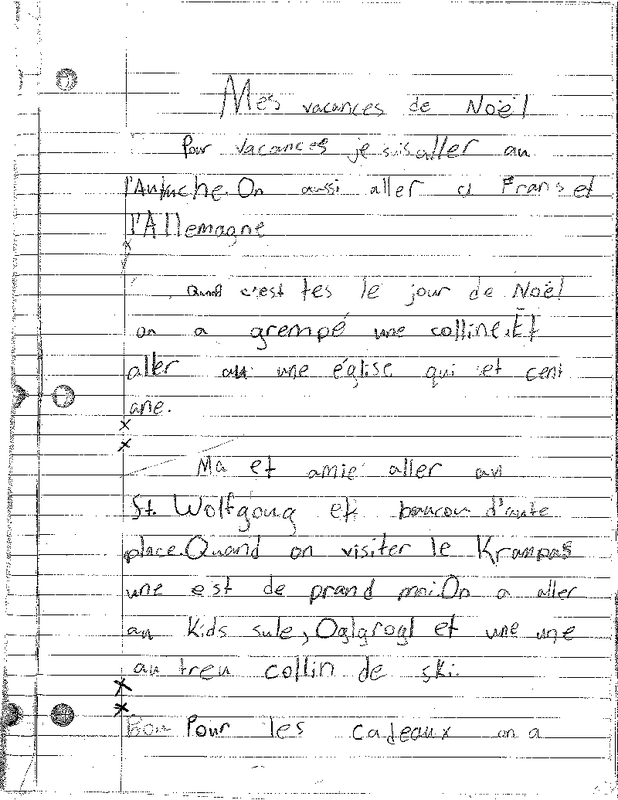 Mes vacances de Noël
Pour vacances je suis aller au
l'Autriche. On aussi aller a Frans et
l'Allemagne
Quand c'est tes le jour de Noël
on a grempé une colline. Et
aller au une église qui et cent
ane.
Ma et amie aller
St. Wolfgoug et baucou d'aute
place. Quand on visiter le Krampas
une est de prand moi. On a aller
au Kids sule, Oglgrogl et une une
au treu collin de ski.
Pour les cadeaux on a